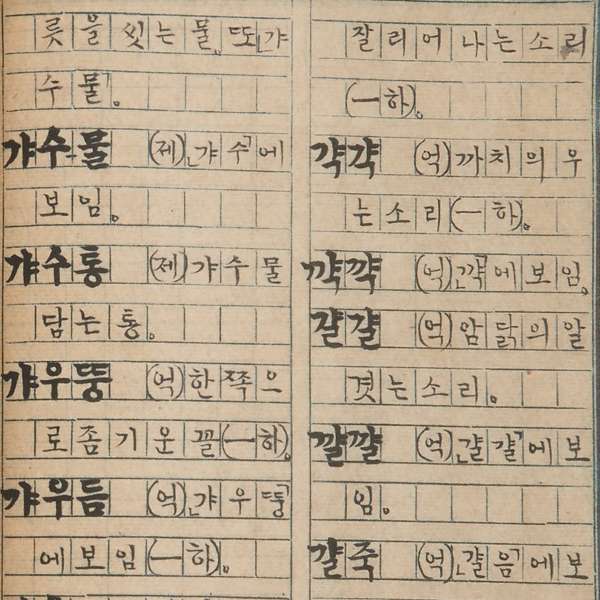 릇을씻는물。또「갸
수물」。
갸수-물 (제)「갸수」에
보임。
갸수통 (제)갸수물
담는통。
갸우뚱 (억)한쪽으
로좀기운꼴(—하)。
갸우듬 (억)「갸우뚱」
에보임(—하)。
잘리어나는소리
(—하)。
갹갹 (억)까치의우
는소리(—하)。
꺅꺅 (억)「꺅」에보임。
걀걀 (억)암닭의알
겻는소리。
꺌꺌 (억)「걀걀」에보
임。
걀죽 (억)「걀음」에보